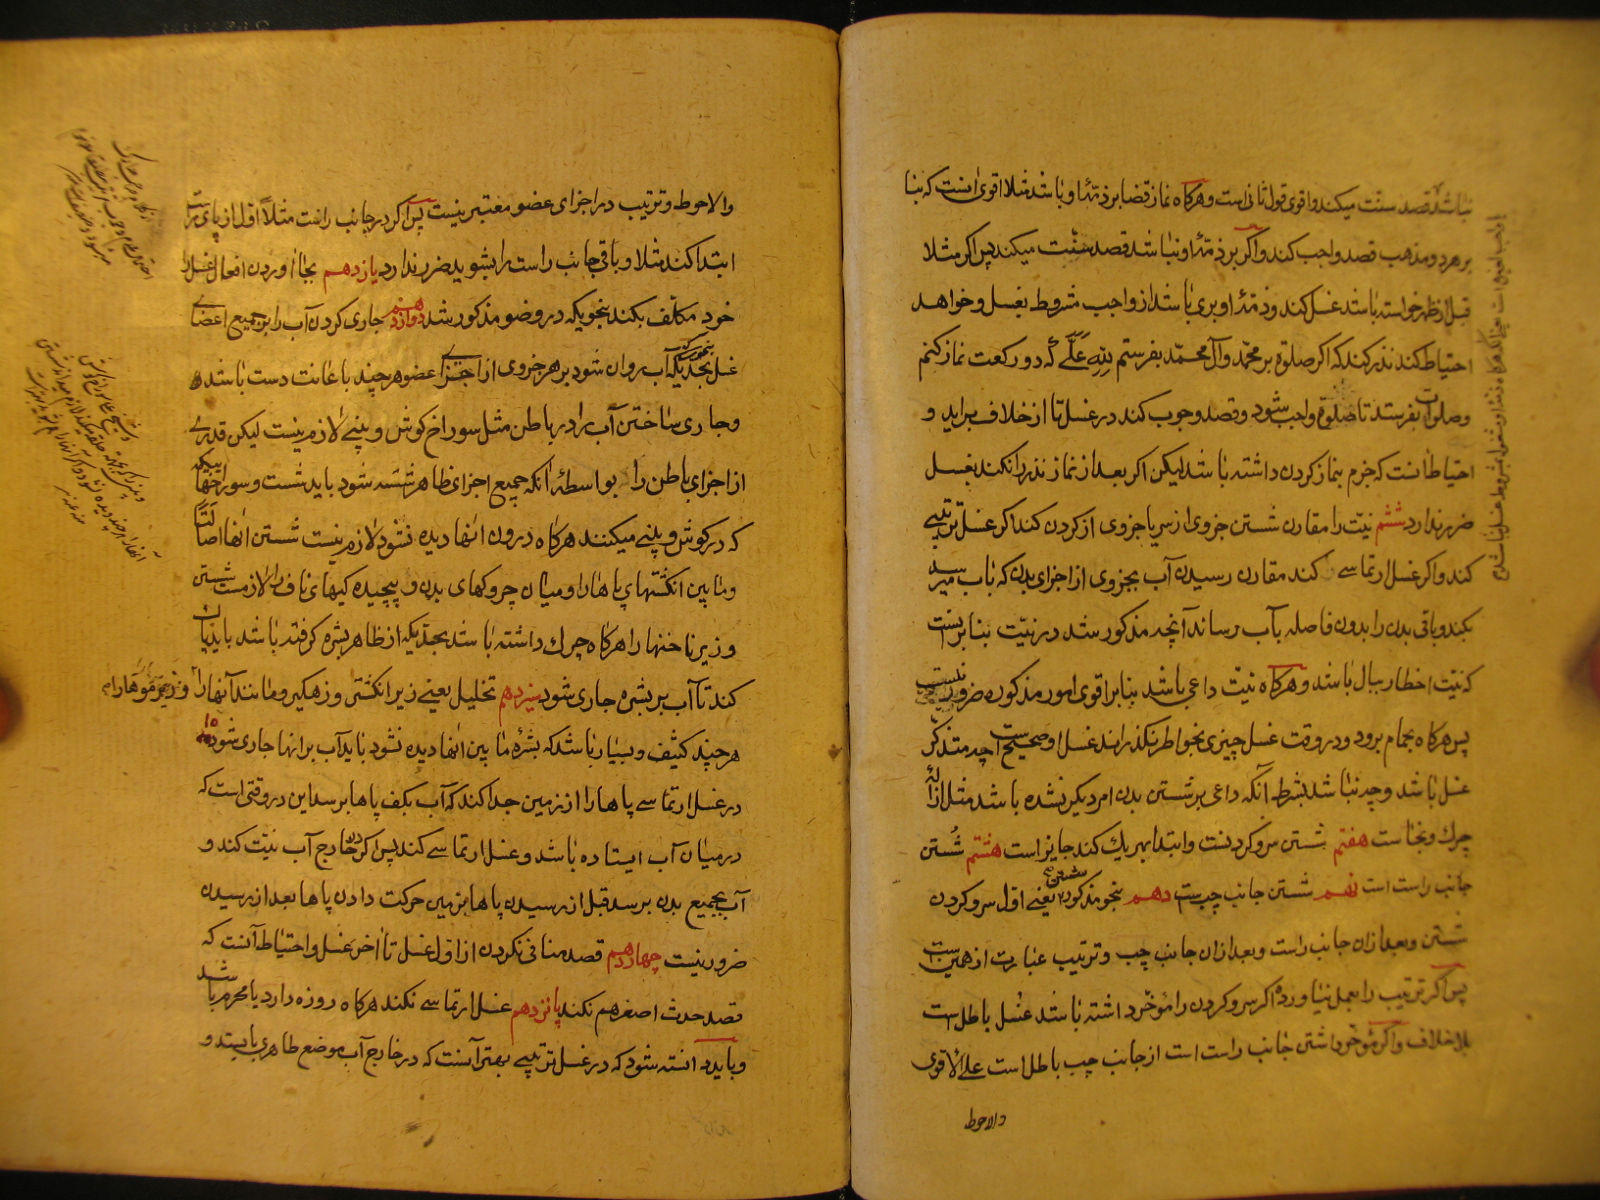 نباشد قصد سنت میکند و اقوی قول ثانی است و هرکاه نماز قضا بر ذمّهٔ او باشد مثلا اقوی آنست که بنا
بر هر دو مذهب قصد واجب کند و اکر بر ذمّهٔ او نباشد قصد سنّت میکند پس اکر مثلا
قبل از ظهر خواسته باشد غسل کند و ذمّهٔ او بری باشد از واجب مشروط بغسل و خواهد
احتیاط کند نذر کند که اکر صلوة بر محمّد و آل محمّد بفرستم لِلّهِ عَلَیَّ که دو رکعت نماز کنم
و صلوات بفرستد تا صلوة واجب شود و قصد وجوب کند در غسل تا از خلاف براید و
احتیاط آنست که جزم بنماز کردن داشته باشد لیکن اکر بعد از نماز نذر را نکند بغسل
ضرر ندارد ششم نیّت را مقارن شستن جزوی از سر یا جزوی از کردن کند اکر غسل ترتیبی
کند و اکر غسل ارتماسی کند مقارن رسیدن آب بجزوی از اجزای بدن که بآب میرسد
بکند و باقی بدن را بدون فاصله بآب رساند آنچه مذکور شد در نیّت بنا بر آنست
که نیّت اخطار ببال باشد و هرکاه نیّت داعی باشد بنا بر اقوی امور مذکوره ضرور نیست
پس هرکاه بحمام برود و در وقت غسل چیزی بخواطر نکذراند غسل او صحیح است چه متذکّر
غسل باشد و چه نباشد بشرط آنکه داعی بر شستن بدن امر دیکر نشده باشد مثل ازالهٔ
چرك و نجاست هفتم شستن سر و کردنست و ابتدا بهریك کند جایز است هشتم شستن
جانب راست است نهم شستن جانب چپست دهم شستن بنحو مذکور یعنی اوّل سر و کردن
شستن و بعد از ان جانب راست و بعد از ان جانب چپ و ترتیب عبارت از همین است
پس اکر ترتیب را بعمل نیاورده اکر سر و کردن را مؤخّر داشته باشد غسل باطل است
بلاخلاف و اکر مؤخر داشتن جانب راست است از جانب چپ باطل است علی الاقوی
والاحوط
والاحوط و ترتیب در اجزای عضو معتبر نیست پس اکر در جانب راست مثلاً اوّل از پای راست
ابتدا کند مثلا و باقی جانب راست را بشوید ضرر ندارد یازدهم بجا آوردن افعال غسل را
خود مکلّف بکند بنحویکه در وضو مذکور شد دوازدهم جاری کردن آب را بر جمیع اعضای
غسل بحدّیکه آب روان شود بر هر جزوی از اجزای عضو هر چند باعانت دست باشد
و جاری ساختن آب را در باطن مثل سوراخ کوش و بینی لازم نیست لیکن قدری
از اجزای باطن را بواسطهٔ آنکه جمیع اجزای ظاهر شسته شود باید شست و سوراخها بیکه
که در کوش و بینی میکنند هرکاه درون آنها دیده نشود لازم نیست شستن آنها اصالتاً
و مابین انکشتهای پاها را و میان چروکهای بدن و پیچیده کیهای ناف را لازمست شستن
و زیر ناخنها را هرکاه چرك داشته باشد بحدّیکه از ظاهر بشره کرفته باشد باید پاك
کند تا آب بر بشره جاری شود سیزدهم تخلیل یعنی زیر انکشتر و زهکیر و مانند آنها را و زیر موها را
هر چند کثیف و بسیار باشد که بشرهٔ مابین آنها دیده نشود باید آب بر انها جاری شود و
در غسل ارتماسی پاها را از زمین جدا کند که آب بکف پاها برسد این در وقتی است که
در میان آب ایستاده باشد و غسل ارتماسی کند پس اکر در خارج آب نیّت کند و
آب بجمیع بدن برسد قبل از رسیدن پاها بزمین حرکت دادن پاها بعد از رسیدن
ضرور نیست چهاردهم قصد منافی نکردن از اوّل غسل تا آخر غسل و احتیاط آنست که
قصد حدث اصغر هم نکند پانزدهم غسل ارتماسی نکند هرکاه روزه دارد یا محرم باشد
و باید دانسته شود که در غسل ترتیبی بهتر آنست که در خارج آب موضع طاهری بایستد و